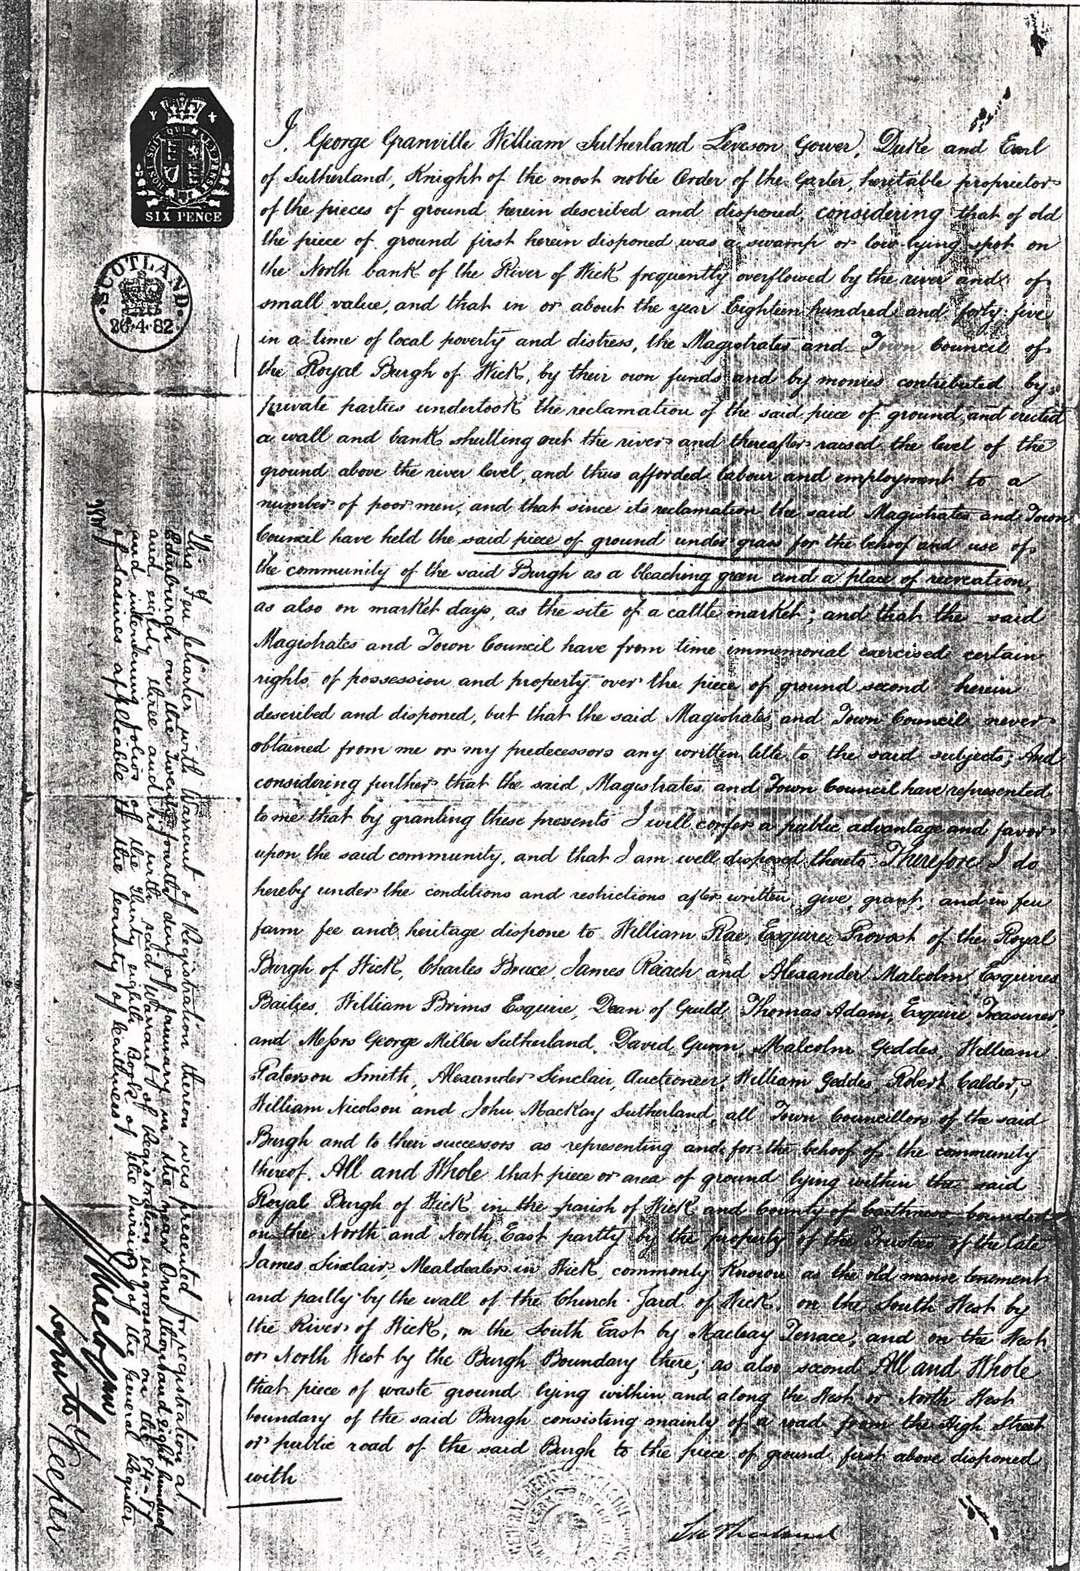 SIX PENCE
SCOTLAND
26·4·82
I, George Granville William Sutherland Leveson Gower, Duke and Earl
of Sutherland, Knight of the most noble Order of the Garter, heritable proprietor
of the pieces of ground herein described and disponed, considering that of old
the piece of ground first herein disponed was a swamp or low-lying spot on
the North bank of the River of Wick frequently overflowed by the river and of
small value, and that in or about the year Eighteen hundred and forty-five
in a time of local poverty and distress, the Magistrates and Town Council of
the Royal Burgh of Wick, by their own funds and by monies contributed by
private parties undertook the reclamation of the said piece of ground, and erected
a wall and bank shutting out the river and thereafter raised the level of the
ground above the river level, and thus afforded labour and employment to a
number of poor men, and that since its reclamation the said Magistrates and Town
Council have held the said piece of ground under grass for the behoof and use of
the community of the said Burgh as a bleaching green and a place of recreation,
as also on market days, as the site of a cattle market; and that the said
Magistrates and Town Council have from time immemorial exercised certain
rights of possession and property over the piece of ground second herein
described and disponed, but that the said Magistrates and Town Council never
obtained from me or my predecessors any written title to the said subjects; And
considering further that the said Magistrates and Town Council have represented
to me that by granting these presents I will confer a public advantage and favor
upon the said community, and that I am well disposed thereto Therefore I do
hereby under the conditions and restrictions after written, give, grant, and in feu
farm fee and heritage dispone to William Rae Esquire Provost of the Royal
Burgh of Wick, Charles Bruce, James Reach and Alexander Malcolm, Esquires
Bailies, William Brims Esquire, Dean of Guild, Thomas Adam, Esquire, Treasurer,
and Messrs George Miller Sutherland, David Gunn, Malcolm Geddes, William
Paterson Smith, Alexander Sinclair, Auctioneer, William Geddes, Robert Calder,
William Nicolson and John MacKay Sutherland, all Town Councillors of the said
Burgh and to their successors as representing and for the behoof of the community
thereof. All and Whole that piece or area of ground lying within the said
Royal Burgh of Wick in the parish of Wick and County of Caithness bounded
on the North and North East partly by the property of the Trustees of the late
James Sinclair, Mealdealer in Wick, commonly known as the old manse tenement
and partly by the wall of the Church Yard of Wick, on the South West by
the River of Wick, on the South East by Macleay Terrace, and on the West
or North West by the Burgh Boundary there; as also second All and Whole
that piece of waste ground lying within and along the West or North West
boundary of the said Burgh consisting mainly of a road from the High Street
or public road of the said Burgh to the piece of ground first above disponed
with
Sutherland
This Feu Charter with Warrant of Registration thereon was presented for registration at
Edinburgh on the Twenty fourth day of January in the year One thousand eight hundred
and eighty three and is with said Warrant of Registration engrossed on the 84-87
and intervening folios of the Thirty eighth Book of the Division of the General Register
of Sasines applicable to the County of Caithness.
Keeper